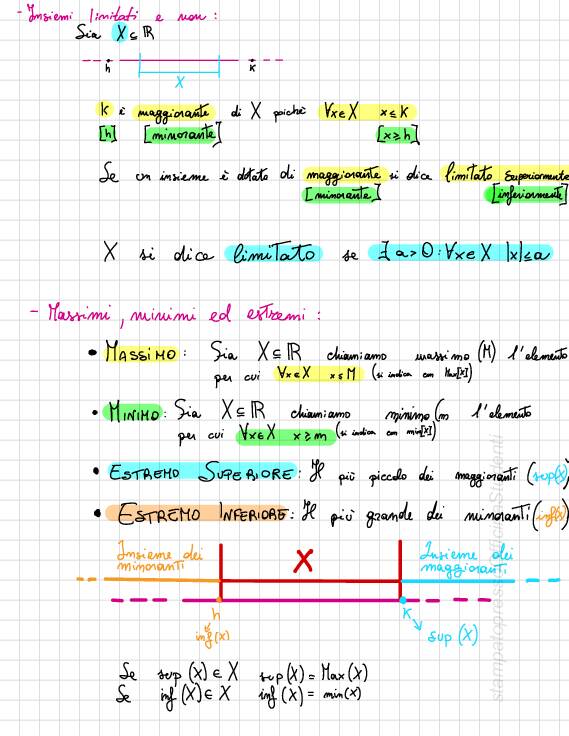 - Insiemi limitati e non:
Sia X ⊆ ℝ
h k
X
k è maggiorante di X poiché ∀x∈X x≤k
[h] [minorante] [x≥h]
Se un insieme è dotato di maggiorante si dice limitato superiormente
[minorante] [inferiormente]
X si dice limitato se ∃ a>0: ∀x∈X |x|≤a
- Massimi, minimi ed estremi:
• MASSIMO: Sia X⊆ℝ chiamiamo massimo (M) l'elemento
per cui ∀x∈X x≤M (si indica con Max[X])
• MINIMO: Sia X⊆ℝ chiamiamo minimo (m l'elemento
per cui ∀x∈X x≥m (si indica con min[X])
• ESTREMO SUPERIORE: Il più piccolo dei maggioranti (sup(X)
• ESTREMO INFERIORE: Il più grande dei minoranti (inf(X)
Insieme dei X Insieme dei
minoranti maggioranti
h k
inf(X) sup (X)
Se sup (X) ∈ X sup(X) = Max(X)
Se inf (X) ∈ X inf(X) = min(X)